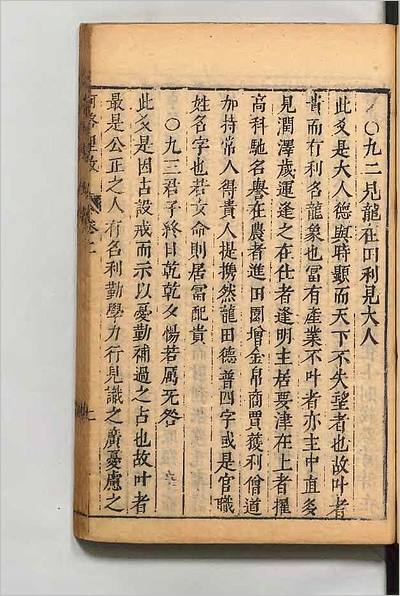 ○九二見龍在田利見大人
此爻是大人德與時顯而天下不失望者也故叶者
貴而有利名龍象也冨有產業不叶者亦主中直多
見潤澤歲運逢之在仕者逢明主居要津在上者擢
高科馳名譽在農者進田園增金帛商賈獲利僧道
加持常人得貴人提携然龍田德普四字或是官職
姓名字也若女命則居冨配貴
○九三君子終日乾乾夕惕若厲无咎
此爻是因占設戒而示以憂勤補過之占也故叶者
最是公正之人有名利勤學力行見識之廣憂慮之
河洛理數